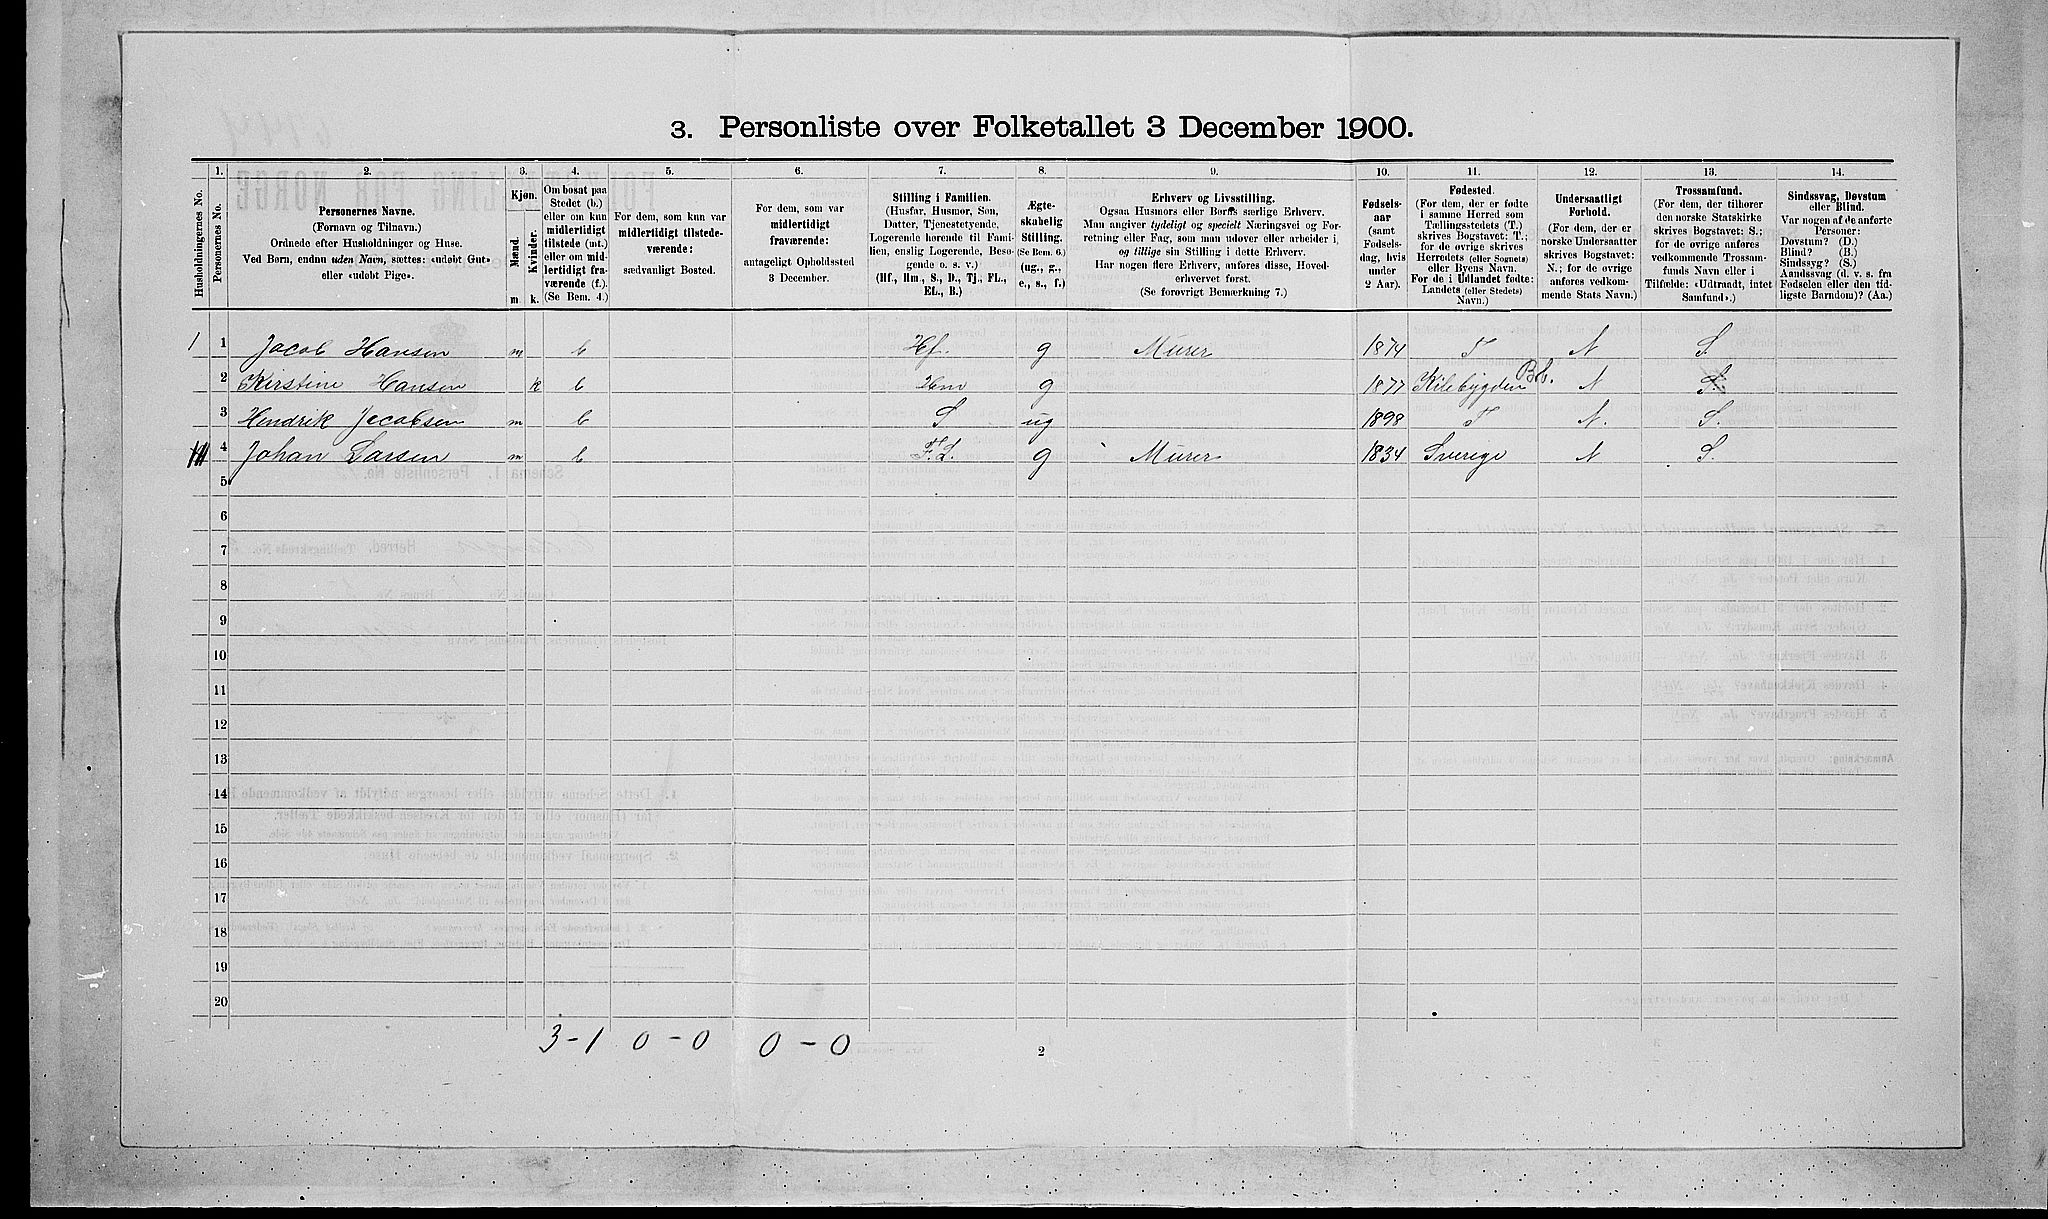 3. Personliste over Folketallet 3 December 1900.
Husholdningernes No.
1.
Personernes No.
2.
Personernes Navne.
(Fornavn og Tilnavn.)
Ordnede efter Husholdninger og Huse.
Ved Børn, endnu uden Navn, sættes: «udøbt Gut»
eller «udøbt Pige».
3.
Kjøn.
Mænd. Kvinder.
m. k.
4.
Om bosat paa
Stedet (b.)
eller om kun
midlertidigt
tilstede (mt.)
eller om mid-
lertidigt fra-
værende (f.).
(Se Bem. 4.)
5.
For dem, som kun var
midlertidigt tilstede-
værende:
sædvanligt Bosted.
6.
For dem, som var
midlertidigt
fraværende:
antageligt Opholdssted
3 December.
7.
Stilling i Familien.
(Husfar, Husmor, Søn,
Datter, Tjenestetyende,
Logerende hørende til Fami-
lien, enslig Logerende, Besø-
gende o. s. v.)
(Hf., Hm., S., D., Tj., FL.,
EL., B.)
8.
Ægte-
skabelig
Stilling.
(Se Bem. 6.)
(ug., g.,
e., s., f.)
9.
Erhverv og Livsstilling.
Ogsaa Husmors eller Børns særlige Erhverv.
Man angiver tydeligt og specielt Næringsvei og For-
retning eller Fag, som man udøver eller arbeider i,
og tillige sin Stilling i dette Erhverv.
Har nogen flere Erhverv, anføres disse, Hoved-
erhvervet først.
(Se forøvrigt Bemærkning 7.)
10.
Fødsels-
aar
(samt
Fødsels-
dag, hvis
under
2 Aar).
11.
Fødested.
(For dem, der er fødte
i samme Herred som
Tællingsstedets (T.)
skrives Bogstavet: T.;
for de øvrige skrives
Herredets (eller Sognets)
eller Byens Navn.
For de i Udlandet fødte:
Landets (eller Stedets)
Navn.)
12.
Undersaatligt
Forhold.
(For dem, der er
norske Undersaatter
skrives Bogstavet:
N.; for de øvrige
anføres vedkom-
mende Stats Navn.)
13.
Trossamfund.
(For dem, der tilhører
den norske Statskirke
skrives Bogstavet: S.;
for de øvrige anføres
vedkommende Trossam-
funds Navn eller i
Tilfælde: «Udtraadt, intet
Samfund».)
14.
Sindssvag, Døvstum
eller Blind.
Var nogen af de anførte
Personer:
Døvstum? (D.)
Blind? (B.)
Sindssyg? (S.)
Aandssvag (d. v. s. fra
Fødselen eller den tid-
ligste Barndom)? (Aa.)
1 1 Jacob Hansen m b Hf. g Murer 1874 T N S.
2 Kirstine Hansen k b Hm g 1877 Kilebygden Bb. N S.
3 Hendrik Jacobsen m b S ug 1898 T N. S.
4 Johan Larsen m b F.L. g Murer 1834 Sverige N S.
5
6
7
8
9
10
11
12
13
14
15
16
17
18
19
20
3-1 0-0 0-0
2